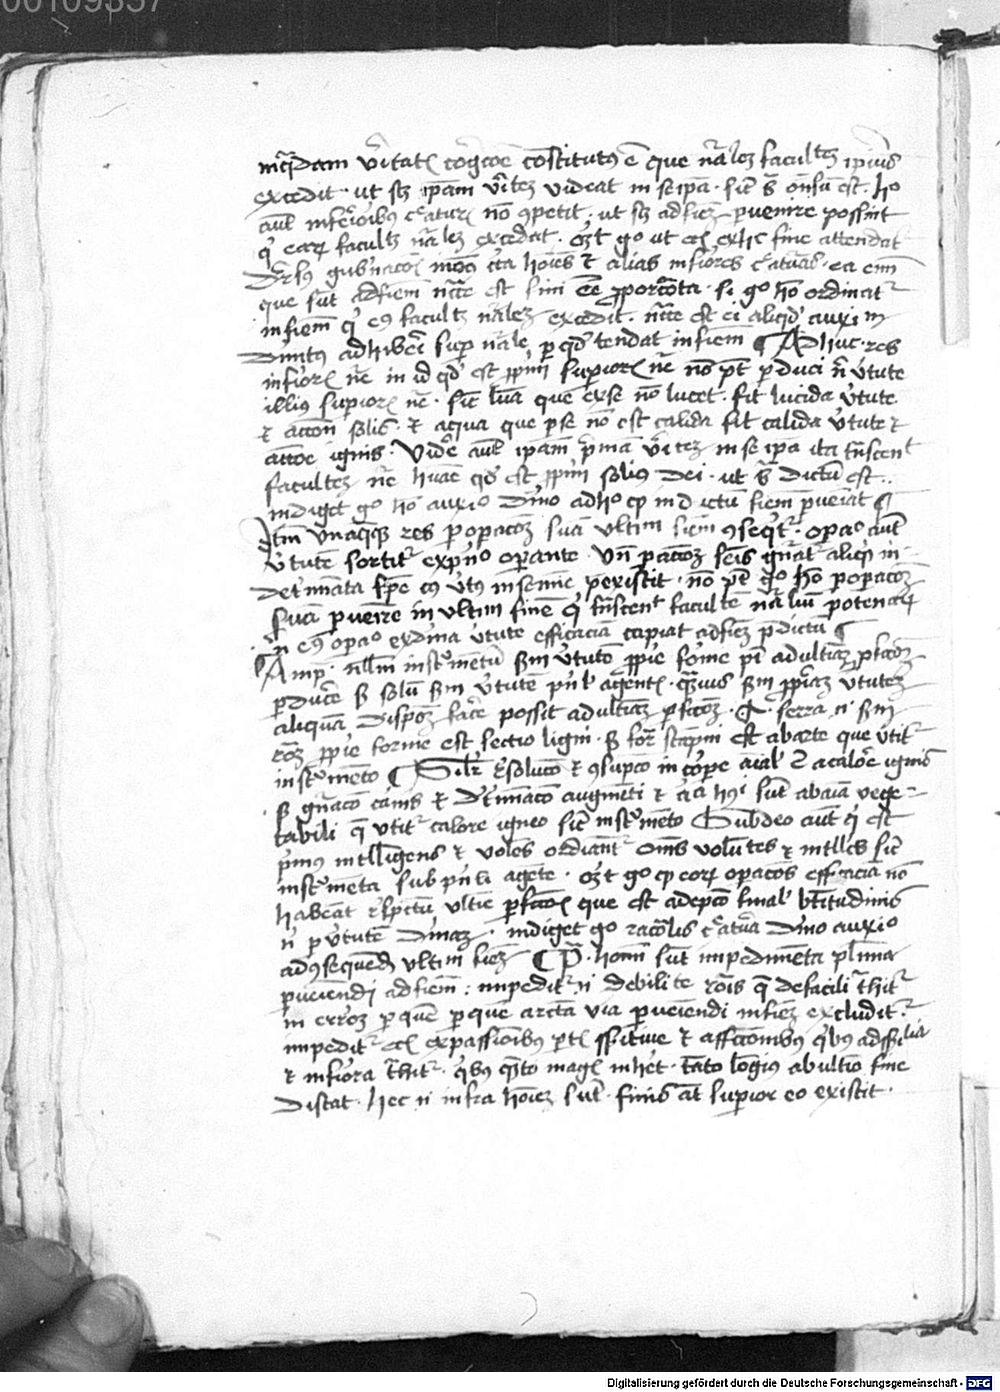 00109357
in quadam veritatis cognicione constitutus est que naturalem facultatem ipsius
excedit · ut scilicet ipsam veritatem videat in seipsa · sicut supra ostensum est · hoc
autem inferioribus creaturis non competit · ut scilicet ad finem pervenire possint
qui eorum facultatem naturalem excedat · oportet ergo ut eciam ex hoc fine attendatur
diversus gubernacionis modus circa homines et alias inferiores creaturas · ea enim
que sunt ad finem necesse est fini esse proporcionata · si ergo homo ordinatur
in finem qui eius facultatem naturalem excedit · necesse est ei aliquod auxilium
divinitus adhiberi supernaturale per quod tendat in finem ¶ Adhuc · res
inferioris nature in id quod est proprium superioris nature non potest perduci nisi virtute
illius superioris nature · sicut luna que ex se non lucet · fit lucida virtute
et accione solis · et aqua que per se non est calida fit calida virtute et
accione ignis · Videre autem ipsam primam veritatem in seipsa ita transcendit
facultatem nature humane quod est proprium solius dei · ut supra dictum est ·
indiget ergo homo auxilio divino ad hoc quod in dictum finem perveniat ¶
Item unaqueque res per operacionem suam ultimum finem consequitur · operacio autem
virtutem sortitur ex principio operante · unde per accionem seminis generatur aliquid in
determinata specie cuius virtus in semine preexistit · non potest ergo homo per operacionem
suam pervenire in ultimum finem qui transcendit facultatem naturalium potenciarum
nisi eius operacio ex divina virtute efficaciam capiat ad finem predictum ¶
Amplius · nullum instrumentum secundum virtutem proprie forme potest ad ultimam perfectionem
perducere sed solum secundum virtutem principalis agentis · quamvis secundum propriam virtutem
aliquam disposicionem facere possit ad ultimam perfectionem · A serra enim secundum
racionem proprie forme est sectio ligni · sed forma scampni est ab arte que utitur
instrumento ¶ Similiter resolucio et consumpcio in corpore animalis est a calore ignis
sed generacio carnis et determinacio augmenti et alia huiusmodi sunt ab anima vege-
tabili que utitur calore igneo sicut instrumento Sub deo autem qui est
primus intelligens et volens ordinantur omnes voluntates et intellectus sicut
instrumenta sub principali agente · oportet ergo quod eorum operaciones efficaciam non
habeant respectu ultime perfectionis que est adepcio finalis beatitudinis
nisi per virtutem divinam · indiget ergo racionalis creatura divino auxilio
ad consequendum ultimum finem ¶ Preterea · homini sunt impedimenta plurima
perveniendi ad finem : impeditur enim debilitate racionis que de facili trahitur
in errorem per quem per quem arcta via perveniendi in finem excluditur ·
impeditur eciam ex passionibus partis sensitive et affeccionibus quibus ad sensibilia
et inferiora trahitur · quibus quanto magis inheret · tanto longius ab ultimo fine
distat · hec enim infra hominem sunt · finis autem superior eo existit ·
Digitalisierung gefördert durch die Deutsche Forschungsgemeinschaft - DFG